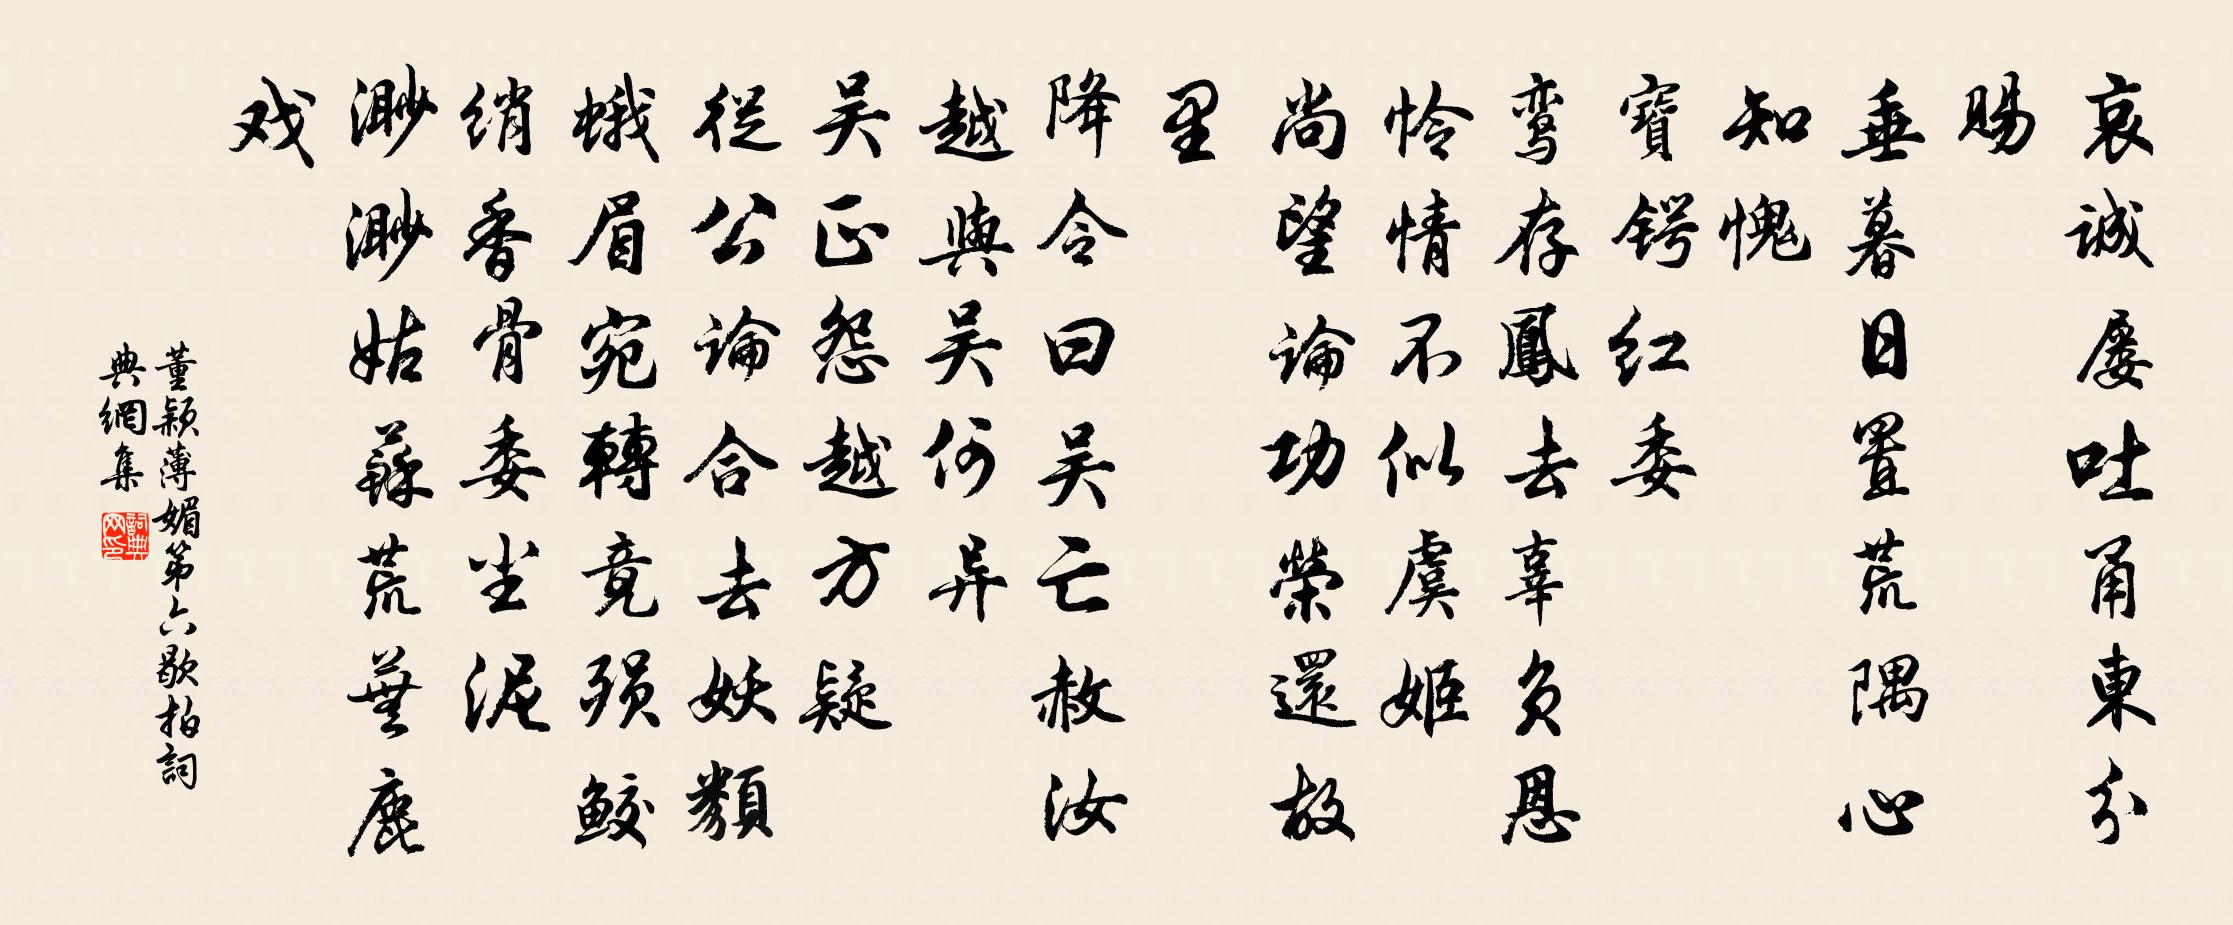 哀诚屡吐甬東分
賜
垂暮日置荒隅心
知愧
寶锷红委
鸾存鳳去辜负恩
怜情不似虞姬
尚望论功榮還故
里
降令曰吴亡赦汝
越與吴何异
吴正怨越方疑
從公论合去妖類
蛾眉宛轉竟殒鲛
绡香骨委尘泥
渺渺姑蘇荒蕪鹿
戏
董颖薄媚第六歇拍詞
典網集
詞典网印